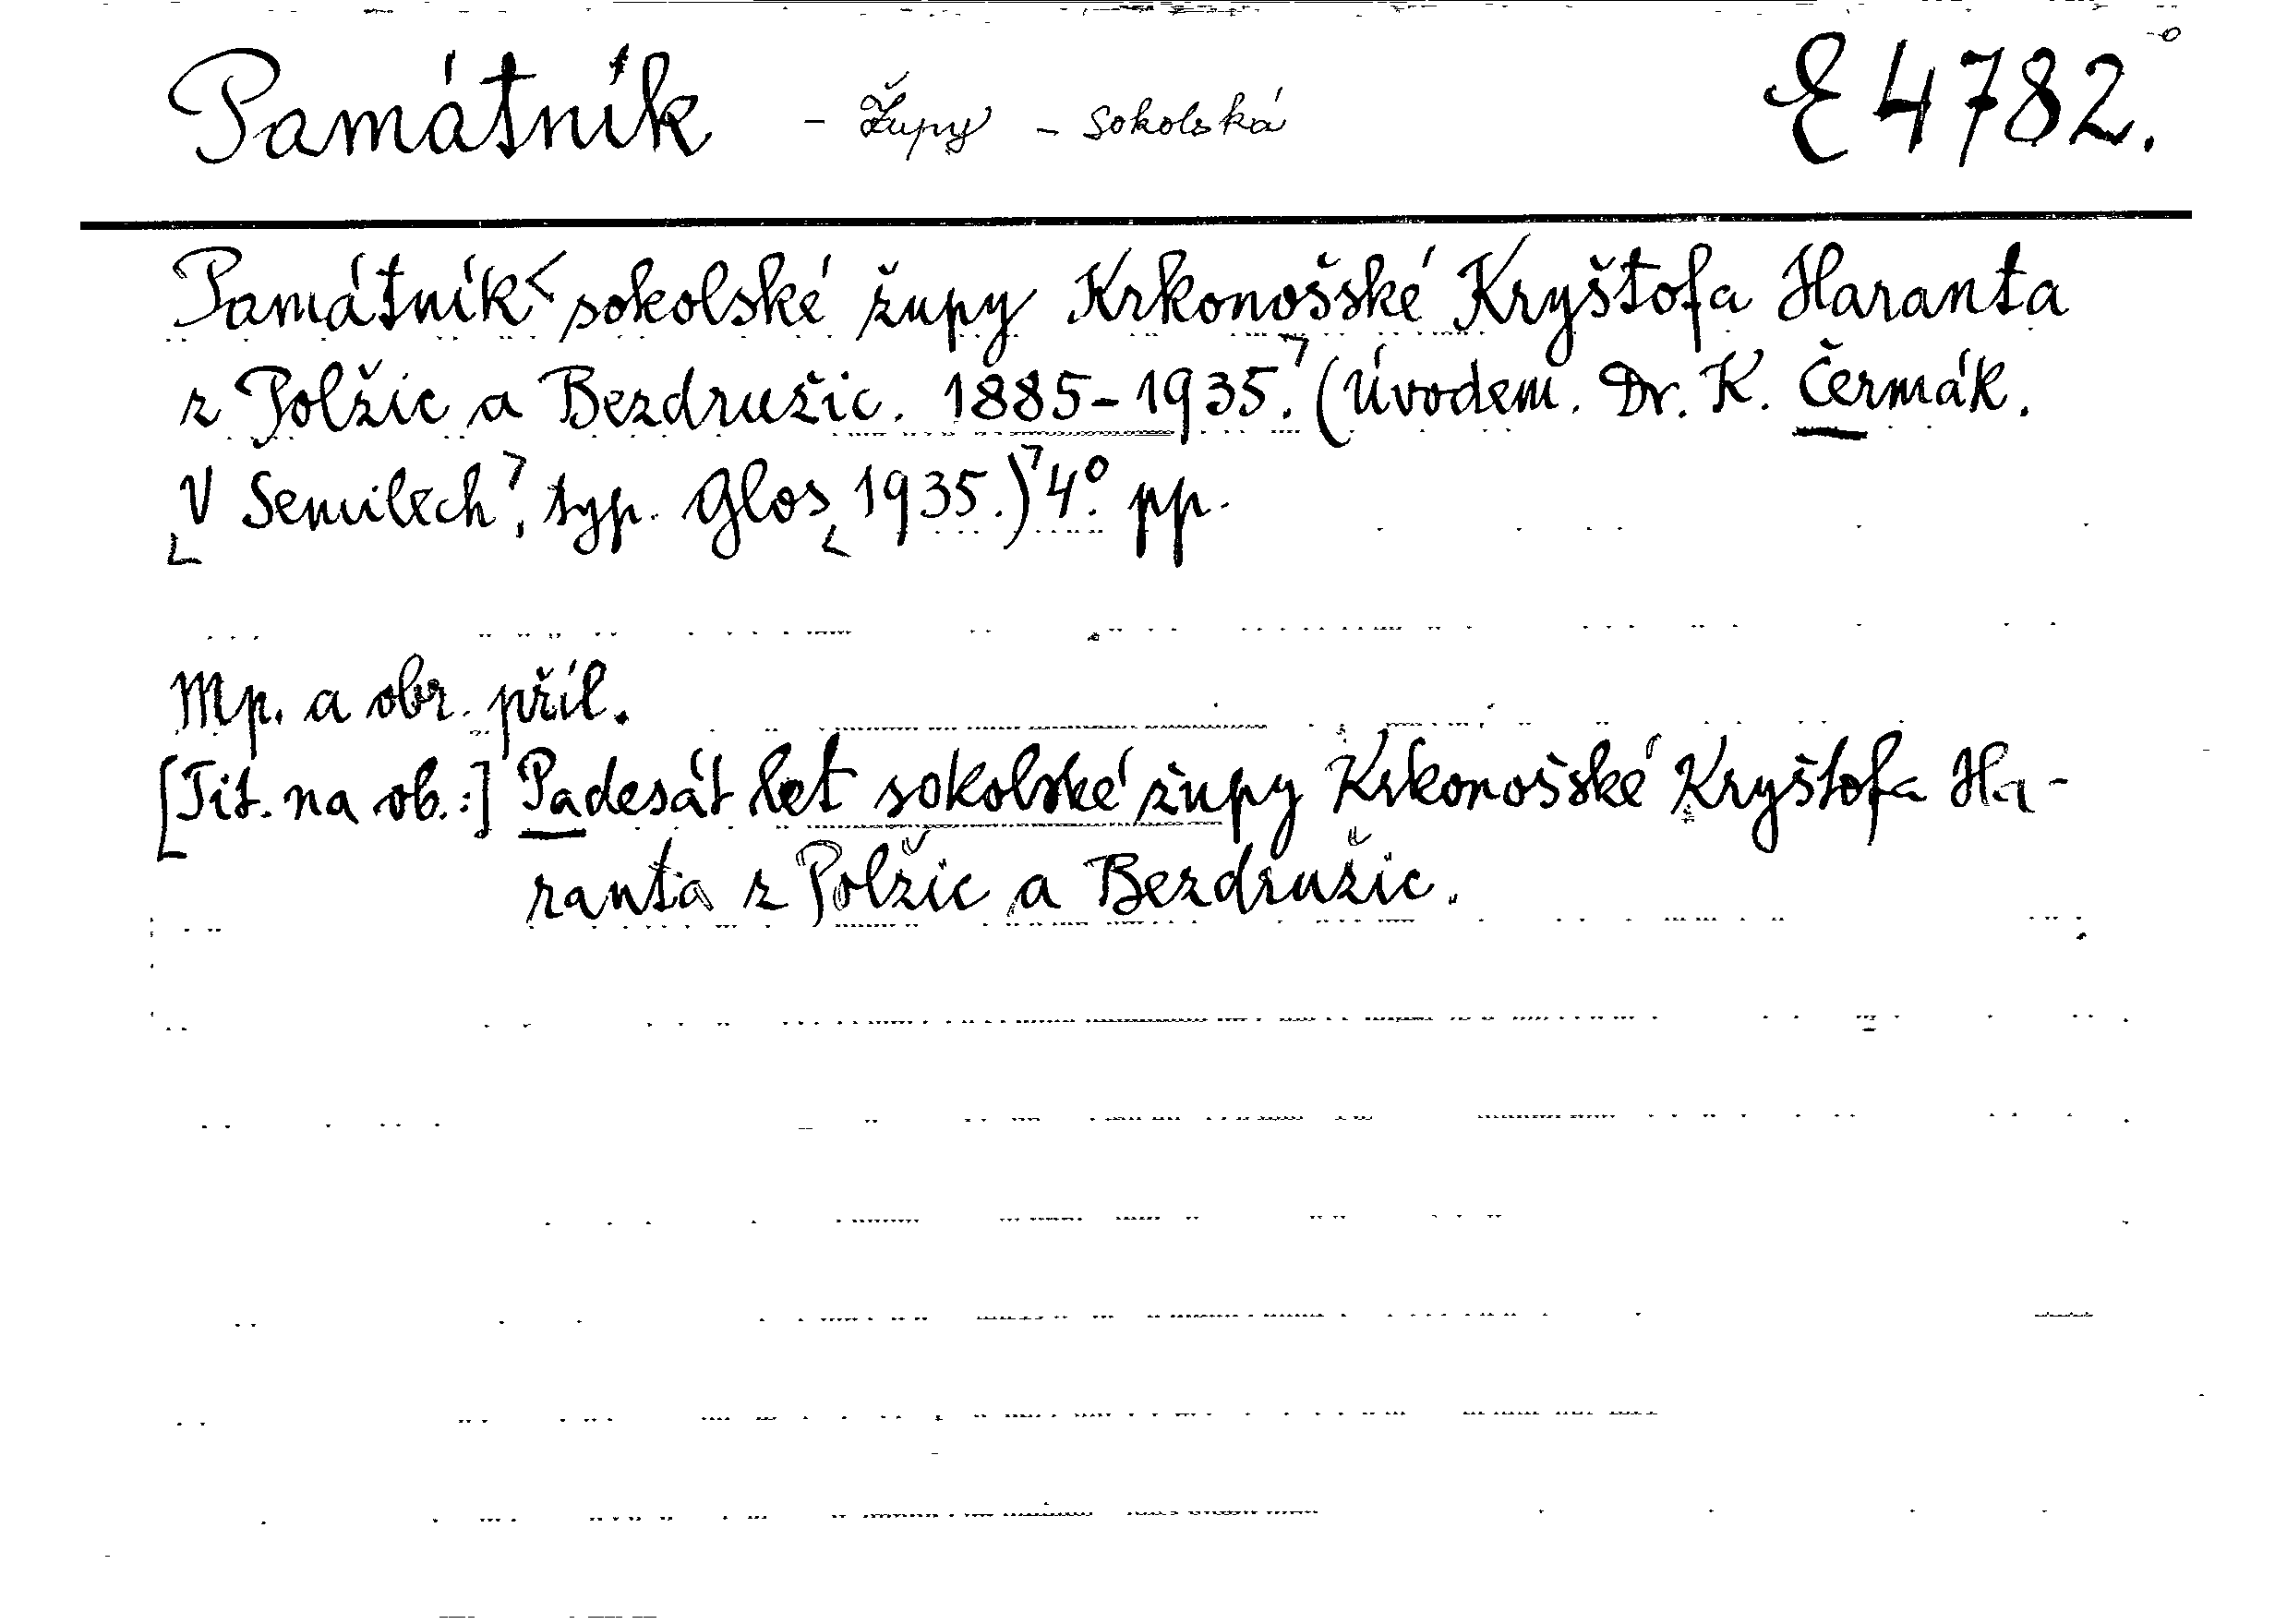 Památník - Župy - sokolská E 4782.
Památník sokolské župy Krkonošské Kryštofa Haranta
z Polžic a Bezdružic. 1885-1935. (Úvodem. Dr. K. Čermák.
V Semilech, typ. Glos 1935.) 4° pp.
Mp. a obr. příl.
[Tit. na ob.:] Padesát let sokolské župy Krkonošské Kryštofa Ha-
ranta z Polžic a Bezdružic.